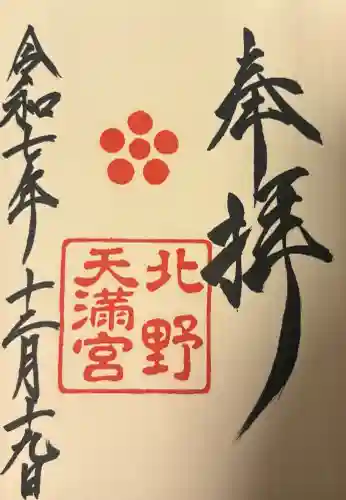 奉拝
北野
天満宮
令和七年十二月十九日